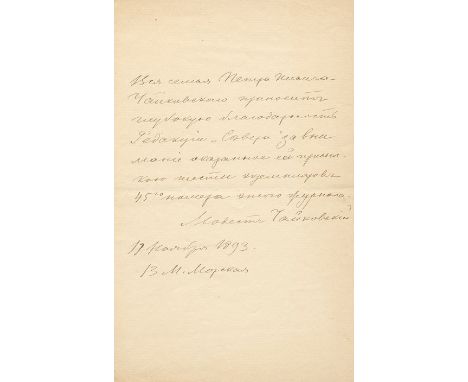 Вся семья Петра Ильича
Чайковского приноситъ
глубокую благодарность
Редакціи „Севера" за вни-
маніе оказанное ей присыл-
кою шести экземпляровъ
45го номера журнала.
Модестъ Чайковскій
17 Ноября 1893.
13 М. Морская